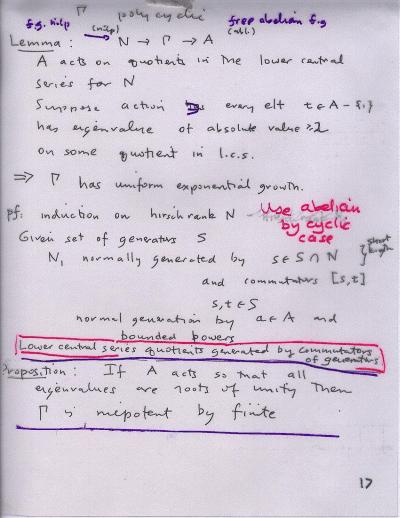 Γ polycyclic
f.g. nilp (nilp) free abelian f.g
Lemma: → N → Γ → A (abl.)
A acts on quotients in the lower central
series for N
Suppose action every elt t ∈ A - {1}
has eigenvalue of absolute value ≥2
on some quotient in l.c.s.
⟹ Γ has uniform exponential growth.
pf: induction on hirsch rank N
Use abelian
by cyclic
case
Given set of generators S
N, normally generated by s∈S∩N
and commutators [s,t]
short
length
s,t∈S
normal generation by a∈A and
bounded powers
Lower central series quotients generated by commutators
of generators
Proposition: If A acts so that all
eigenvalues are roots of unity then
Γ is nilpotent by finite
17